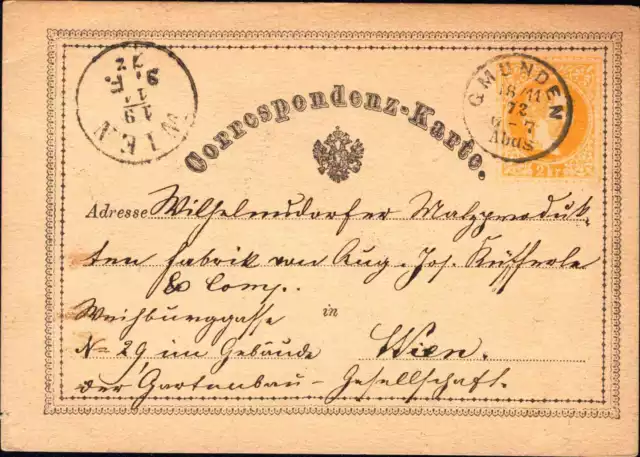 WIEN
19
11
9. F.
72
GMUNDEN
18/11
72
6-7
Abds
2 Kr
Correspondenz-Karte.
Adresse Wilhelmsdorfer Malzproduk
ten Fabrik von Aug. Jos. Küfferle
& Comp.
Weihburggasse in
No 29, im Gebäude Wien.
der Gartenbau-Gesellschaft.